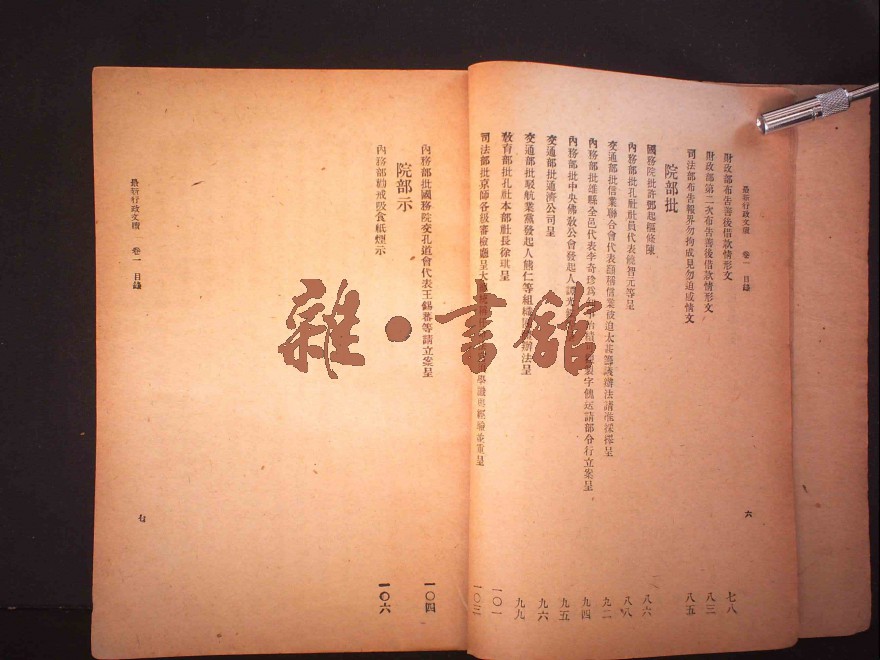 最新行政文牘 卷一 目錄
六
財政部布告善後借款情形文 七八
財政部第二次布告善後借款情形文 八三
司法部布告報界勿拘成見勿逞感情文 八五
院部批
國務院批許鄧起樞條陳 八六
內務部批孔社社員代表饒智元等呈 八八
交通部批信業聯合會代表顧稱信業被迫太甚籌議辦法請准採擇呈 九二
內務部批雄縣全邑代表李奇珍爲 製字 請部令行立案呈 九四
內務部批中央佛教公會發起人 九五
交通部批通濟公司呈 九六
交通部批駁航業黨發起人熊仁等組織 辦法呈 九九
敎育部批孔社本部社長徐琪呈 一〇一
司法部批京師各級審檢廳呈 學識與經驗並重呈 一〇三
最新行政文牘 卷一 目錄
七
內務部批國務院交孔道會代表王錫蕃等請立案呈 一〇四
院部示
內務部勸戒吸食紙煙示 一〇六
雜·書館